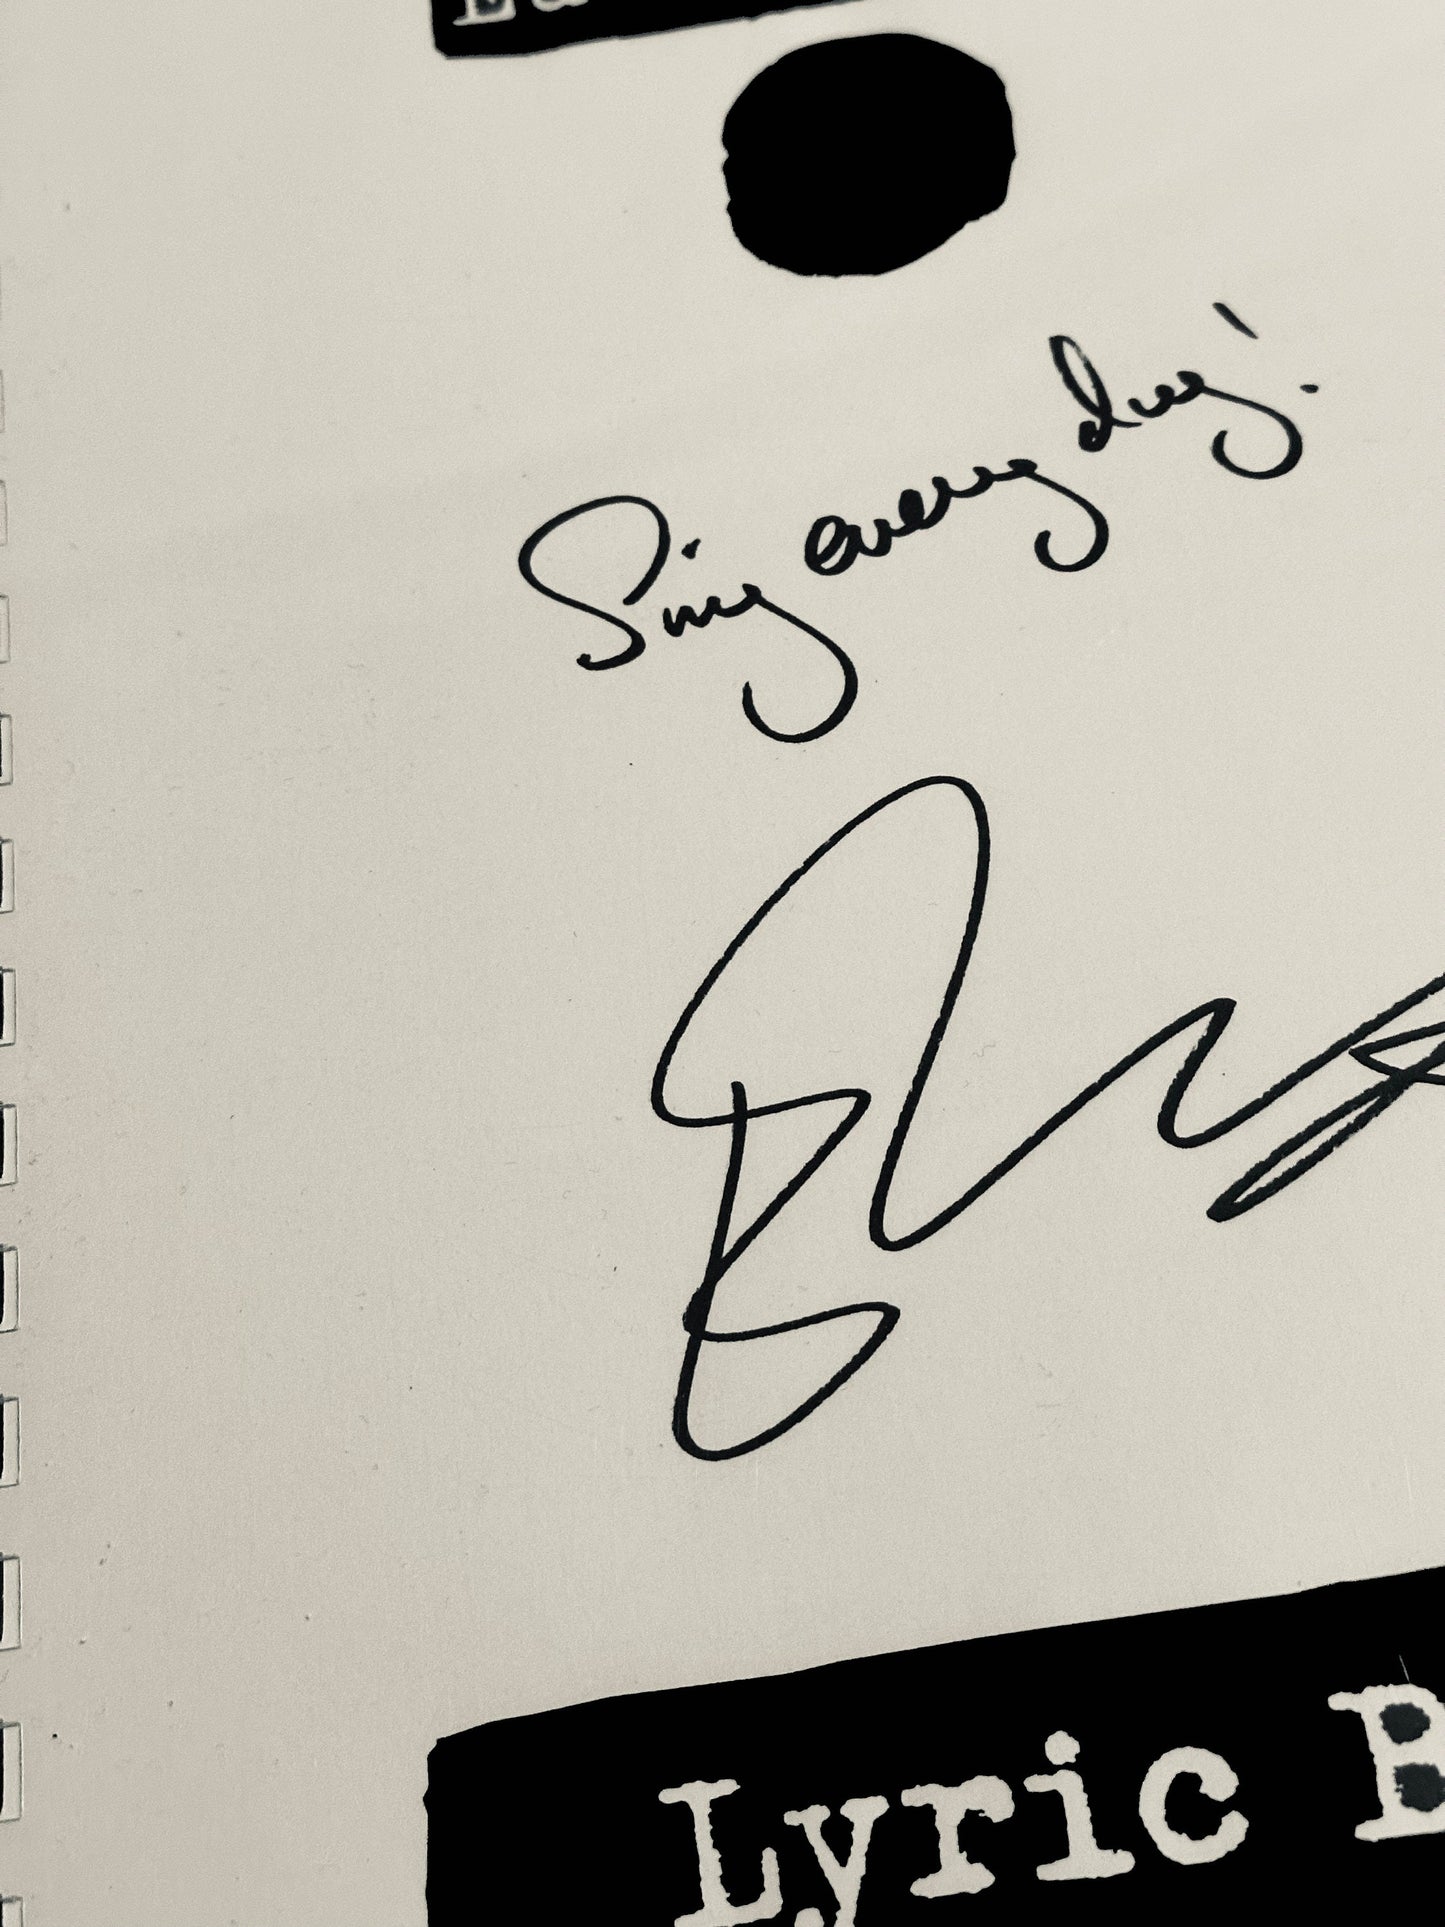 Sing every day!
Lyric B